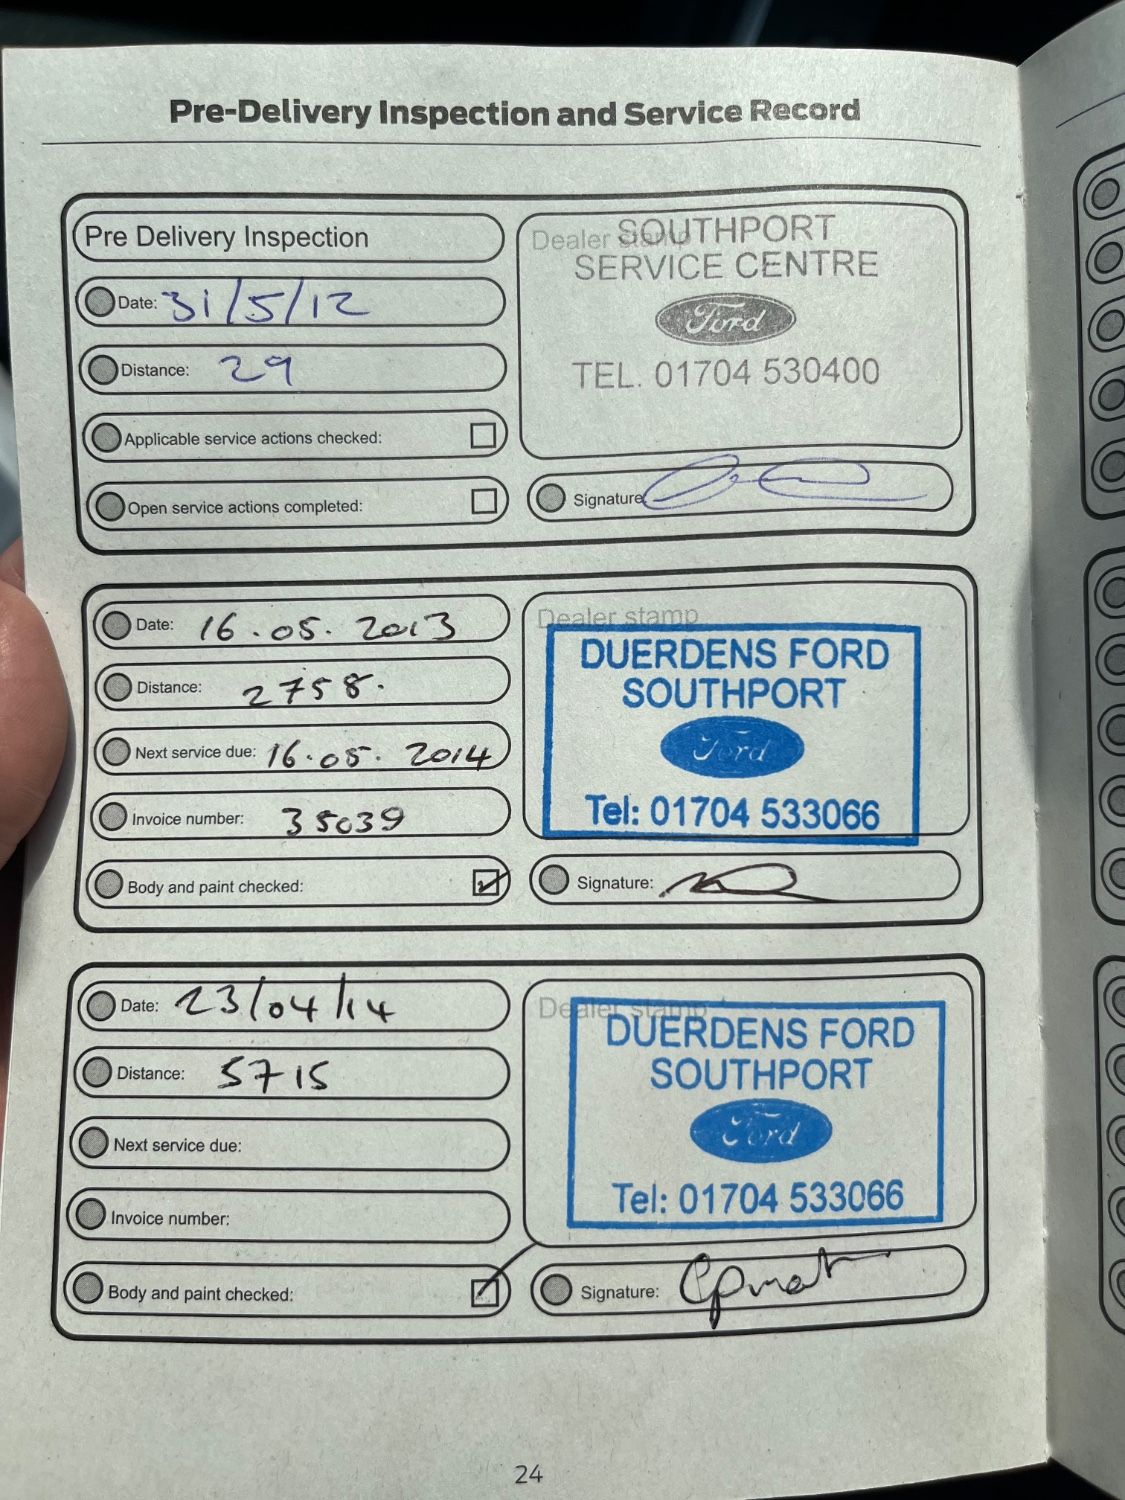 Pre-Delivery Inspection and Service Record
Pre Delivery Inspection
Date: 31/5/12
Distance: 29
Applicable service actions checked:
Open service actions completed:
Dealer stamp
SOUTHPORT
SERVICE CENTRE
Ford
TEL. 01704 530400
Signature
Date: 16.05.2013
Distance: 2758.
Next service due: 16.05.2014
Invoice number: 35039
Body and paint checked:
Dealer stamp
DUERDENS FORD
SOUTHPORT
Ford
Tel: 01704 533066
Signature:
Date: 23/04/14
Distance: 5715
Next service due:
Invoice number:
Body and paint checked:
Dealer stamp
DUERDENS FORD
SOUTHPORT
Ford
Tel: 01704 533066
Signature:
24